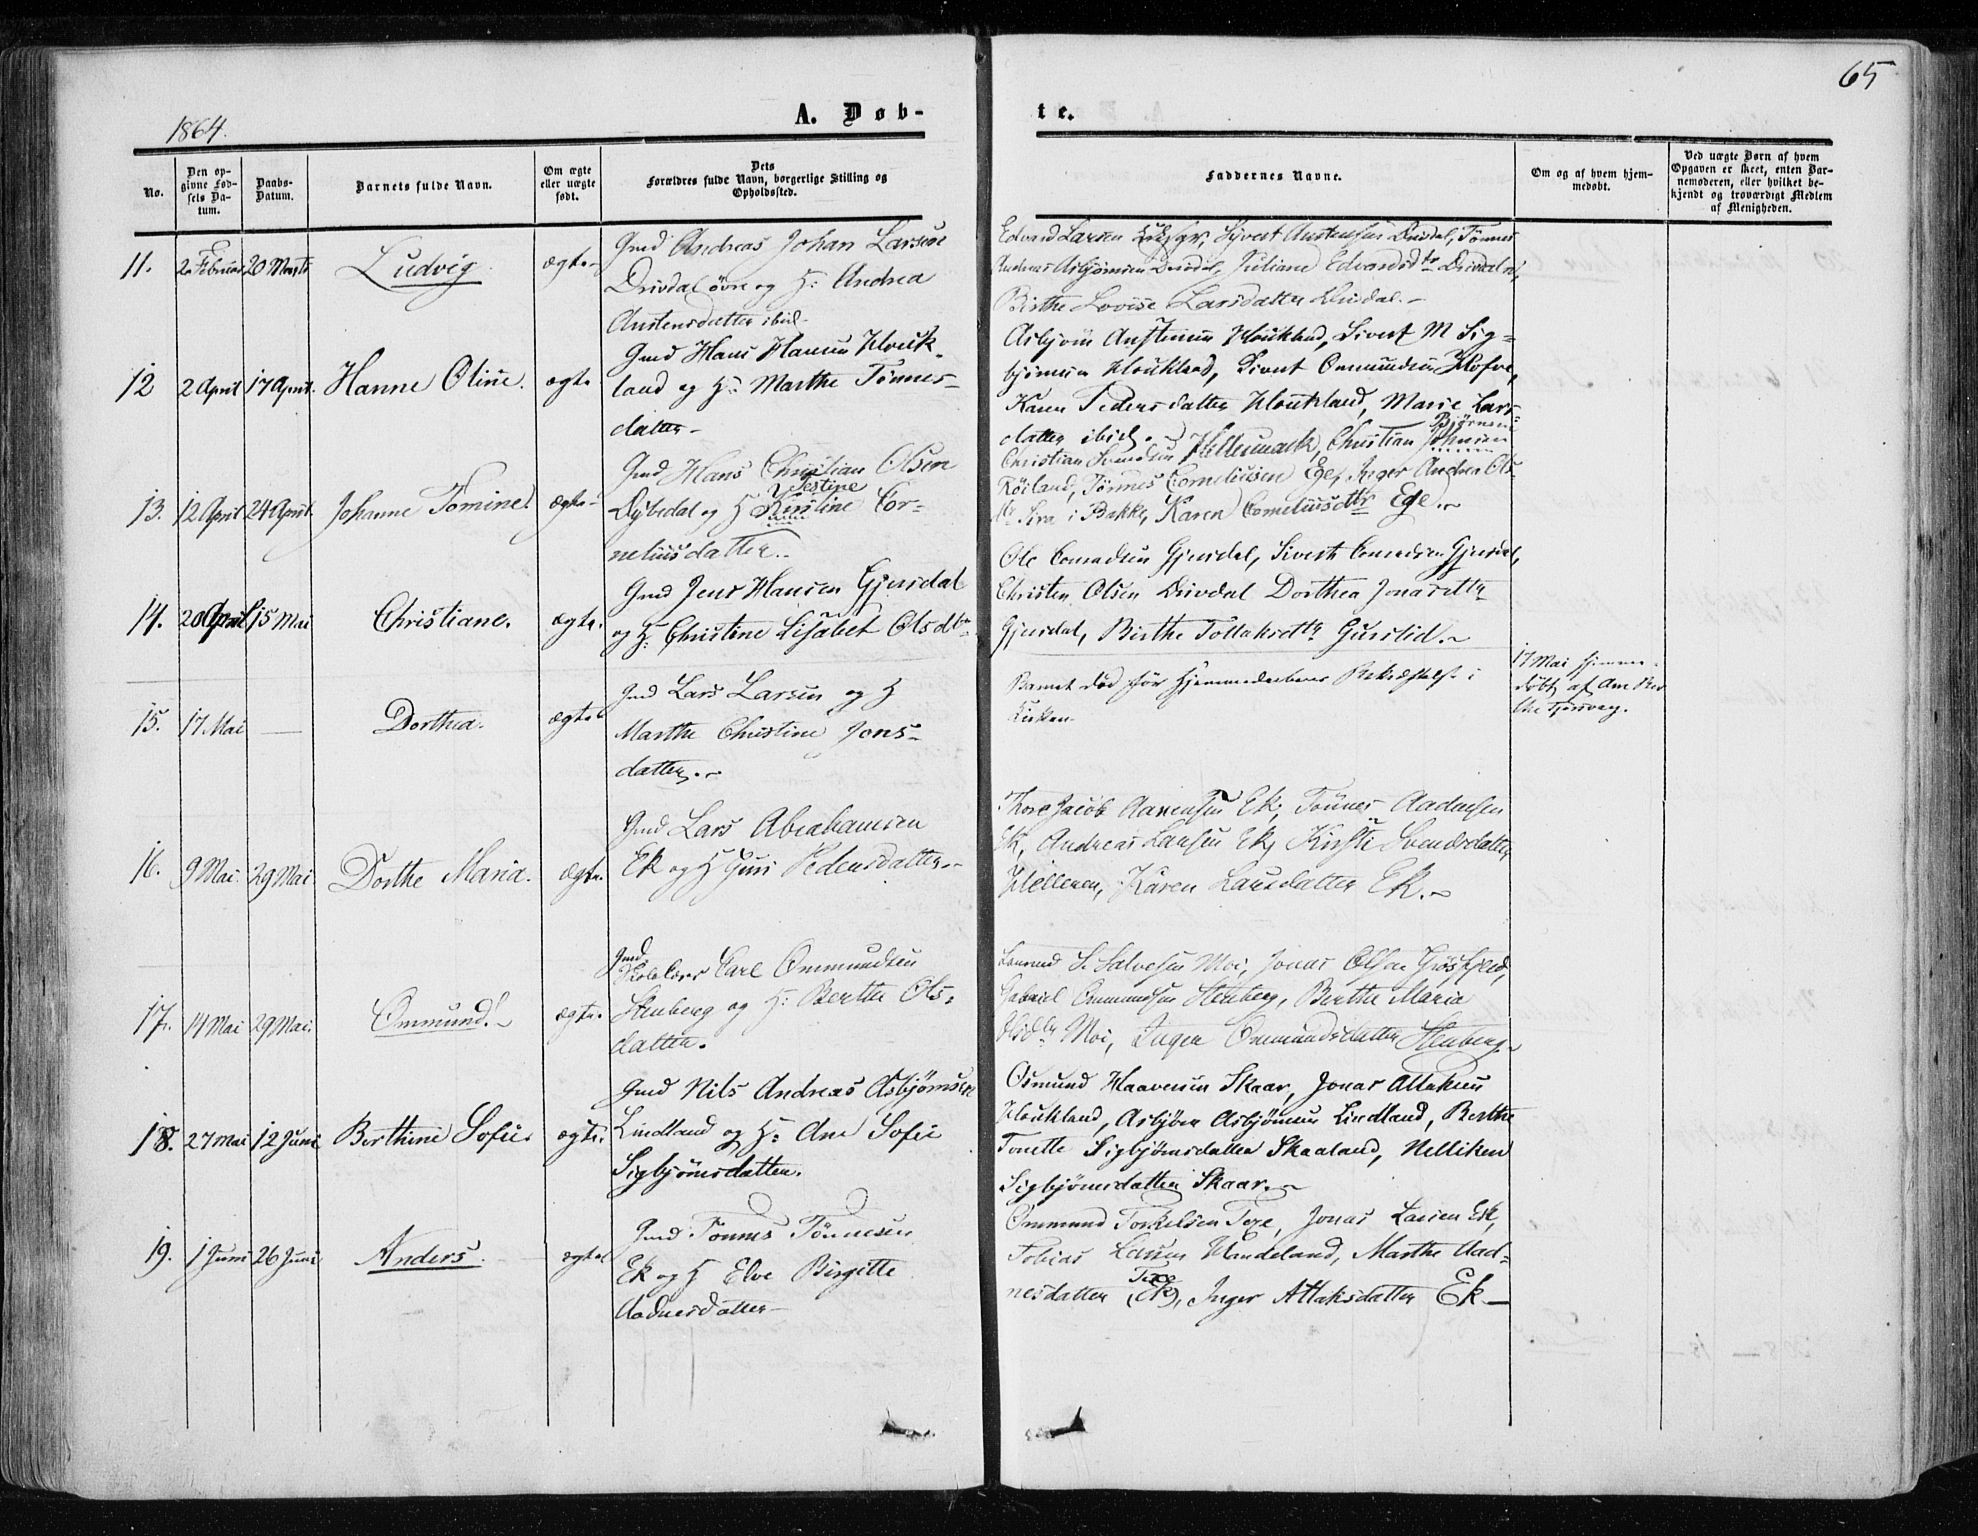 65
1864.
A. Døb-
te.
No.
Den op-
givne Fød-
sels Da-
tum.
Daabs-
Datum.
Barnets fulde Navn.
Om ægte
eller uægte
født.
Dets
Forældres fulde Navn, borgerlige Stilling og
Opholdssted.
Faddernes Navne.
Om og af hvem hjem-
medøbt.
Ved uægte Børn af hvem
Opgaven er skeet, enten Bar-
nemoderen, eller hvilket be-
kjendt og troværdigt Medlem
af Menigheden.
11.
2 Februar
20 Marts
Ludvig
ægte
Gmd Andreas Johan Larsen
Drivdal øvre og H: Andrea
Austensdatter ibid.
Edvard Larsen Sivert Austensen Drivdal, Tønnes
Andreas Asbjørnsen Drivdal, Juliane Edvardsdtr Drivdal
Birthe Lovise Larsdatter Drivdal.
12
2 April
17 April.
Hanne Oline.
ægte
Gmd Hans Hansen Houk-
land og H: Marthe Tønnes-
datter
Asbjørn Austensen Houkland, Sivert M Sig-
bjørnsen Houkland, Sivert Ommundsen
Karen Pedersdatter Houkland, Marie Lars-
datter ibid.
13.
12 April
24 April.
Johanne Tomine
ægte
Gmd Hans Christian Olsen
Jestine
Dybedal og H Kirstine Cor-
neliusdatter.
Bjørnsen
Christian Svendsen Christian Johnsen
Røiland, Tønnes Corneliusen Ege, Inger Andrea Ols-
dtr Sira i Bakke, Karen Corneliusdtr Ege.
14.
20 April
15 Mai
Christiane.
ægte.
Gmd Jens Hansen Gjersdal
og H: Christine Lisabet Olsdtr
Ole Conradsen Gjersdal, Sivert Conradsen Gjersdal,
Christen Olsen Drivdal Dorthea Jonasdtr
Gjersdal, Birthe Tollaksdtr
15.
17 Mai
Dorthea.
ægte
Gmd Lars Larsen og H
Marthe Christine Jons-
datter.
Barnet død før Hjemmedaabens Bekræftelse i
Kirken.
17 Mai hjemme-
døbt af Ane Ber-
the
16.
9 Mai.
29 Mai
Dorthe Maria.
ægte.
Gmd Lars Abrahamsen
Ek og H Guri Pedersdatter
Thore Jacob Aanensen Ek, Tønnes Aadnesen
Ek, Andreas Larsen Ek, Kirsti Svendsdatter
Karen Larsdatter Ek.
17.
14 Mai
29 Mai.
Ommund.
ægte.
Gmd
Skolelærer Carl Ommundsen
Stenberg og H: Berthe Ols-
datter.
S. Salvesen Moi, Jonas Olsen
Gabriel Ommundsen Stenberg, Berthe Maria
Olsdtr Moi, Inger Ommundsdatter Stenberg
18.
27 Mai
12 Juni
Berthine Sofie.
ægte.
Gmd Nils Andreas Asbjørnsen
Lindland og H: Ane Sofie
Sigbjørnsdatter.
Osmund Haaversen Skaar, Jonas Attaksen
Houkland, Asbjørn Asbjørnsen Lindland, Berthe
Tonette Sigbjørnsdatter Skaaland, Nelliken
Sigbjørnsdatter Skaar.
19.
1 Juni
26 Juni
Anders.
ægte
Gmd Tønnes Tønnesen
Ek og H Elve Birgitte
Aadnesdatter
Ommund Torkelsen Texe, Jonas Larsen Ek,
Tobias Larsen Handeland, Marthe Aad-
Texe
nesdatter (Ek), Inger Attaksdatter Ek